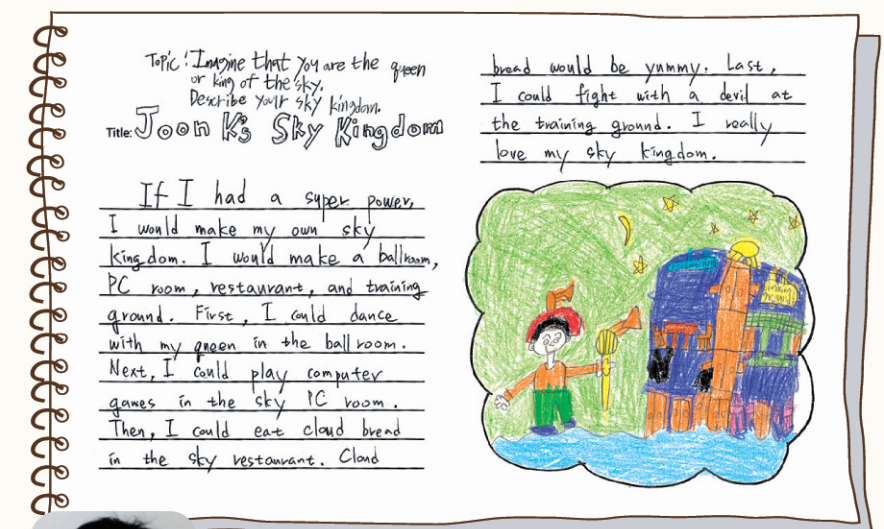 Topic: Imagine that you are the queen
or king of the sky.
Describe your sky kingdom.
Title: Joon K's Sky Kingdom
If I had a super power,
I would make my own sky
kingdom. I would make a ballroom,
PC room, restaurant, and training
ground. First, I could dance
with my queen in the ball room.
Next, I could play computer
games in the sky PC room.
Then, I could eat cloud bread
in the sky restaurant. Cloud
bread would be yummy. Last,
I could fight with a devil at
the training ground. I really
love my sky kingdom.